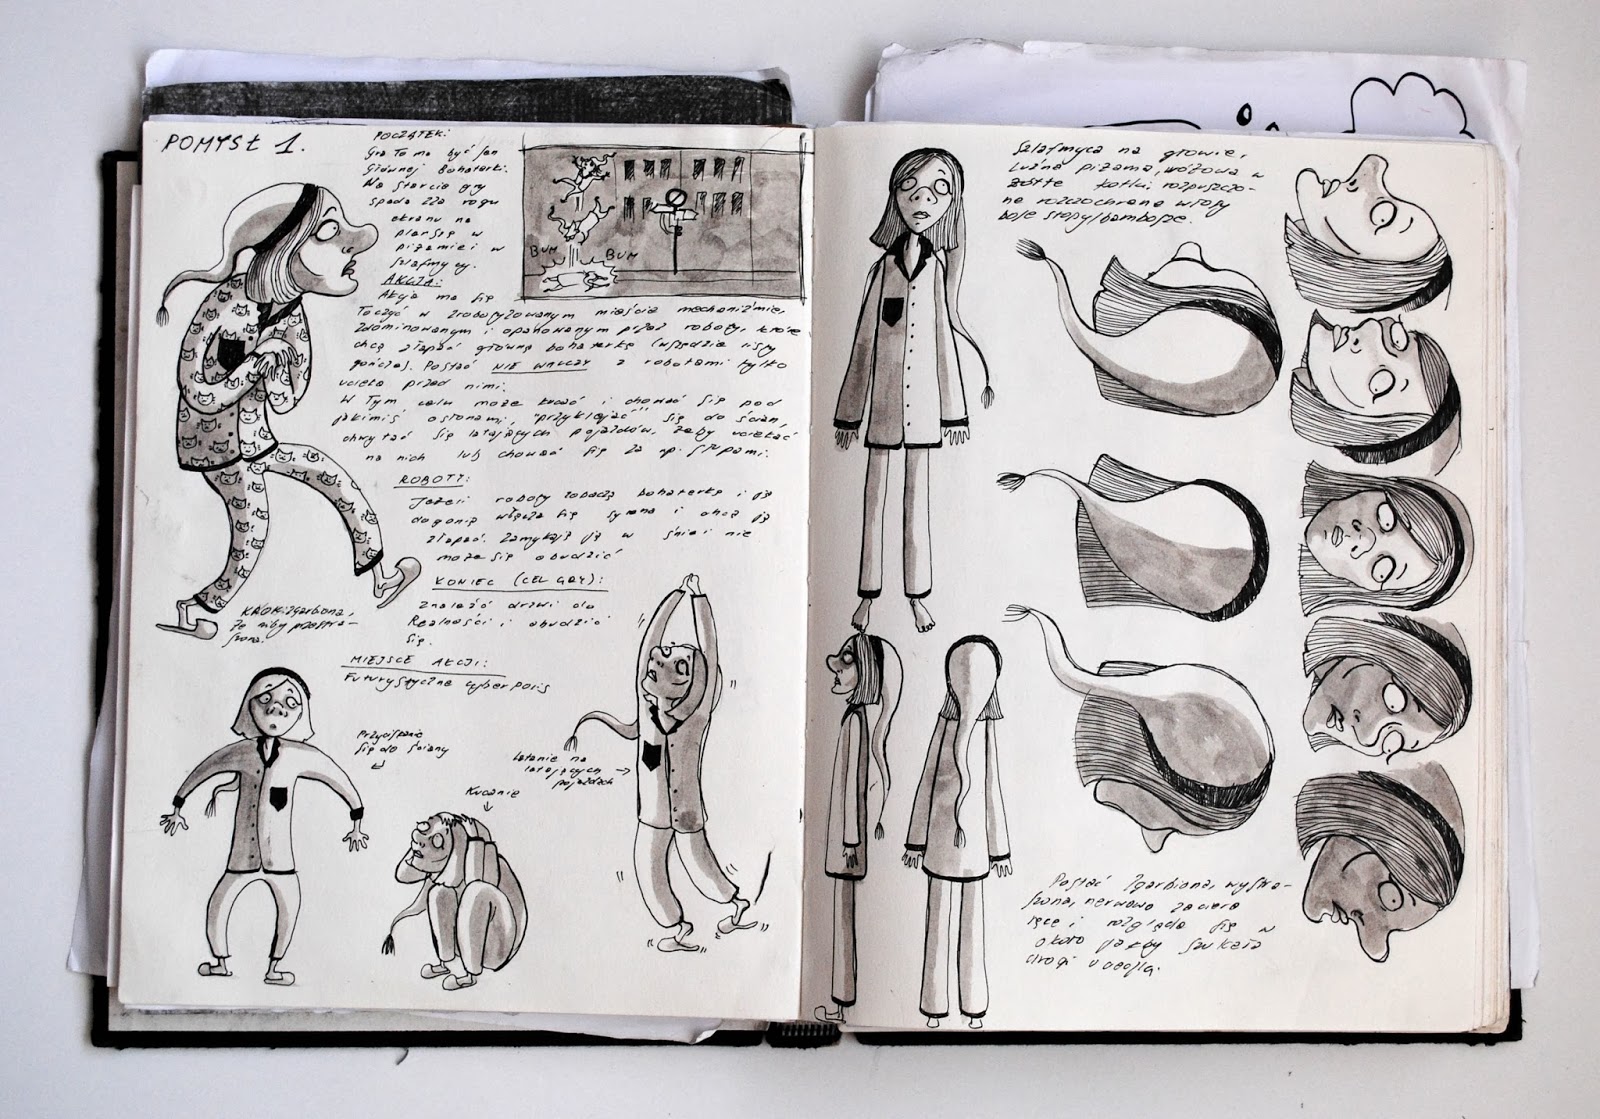 POMYSŁ 1.
POCZĄTEK:
Gra to ma być sen
głównej bohaterki.
Na starcie gry
spada zza rogu
ekranu na
planszę w
piżamie i w
szlafmycy.
BUM BUM
AKCJA:
Akcja ma się
toczyć w zrobotyzowanym mieście mechanizmie,
zdominowanym i opanowanym przez roboty, które
chcą złapać główną bohaterkę (wszędzie listy
gończe). Postać NIE WALCZY z robotami tylko
ucieka przed nimi.
W tym celu może kucać i chować się pod
jakimiś osłonami, "przyklejać" się do ścian,
chwytać się latających pojazdów, żeby uciekać
na nich lub chować się za np. słupami.
ROBOTY:
Jeżeli roboty zobaczą bohaterkę i ją
dogonią włącza się syrena i chcą ją
złapać. Zamykają ją w śnie i nie
może się obudzić
KONIEC (CEL GRY):
Znaleźć drzwi do
Realności i obudzić
się.
KROK: zgarbiona,
że niby przestra-
szona.
MIEJSCE AKCJI:
Futurystyczne cyberpolis
Przyciskanie
się do ściany
Kucanie
Latanie na
latających
pojazdach
Szlafmyca na głowie,
luźna piżama, różowa w
żółte kotki, rozpuszczo-
ne rozczochrane włosy
bose stopy/bambosze.
Postać zgarbiona, wystra-
szona, nerwowo zaciera
ręce i rozgląda się w
około jakby szukała
drogi ucieczki.